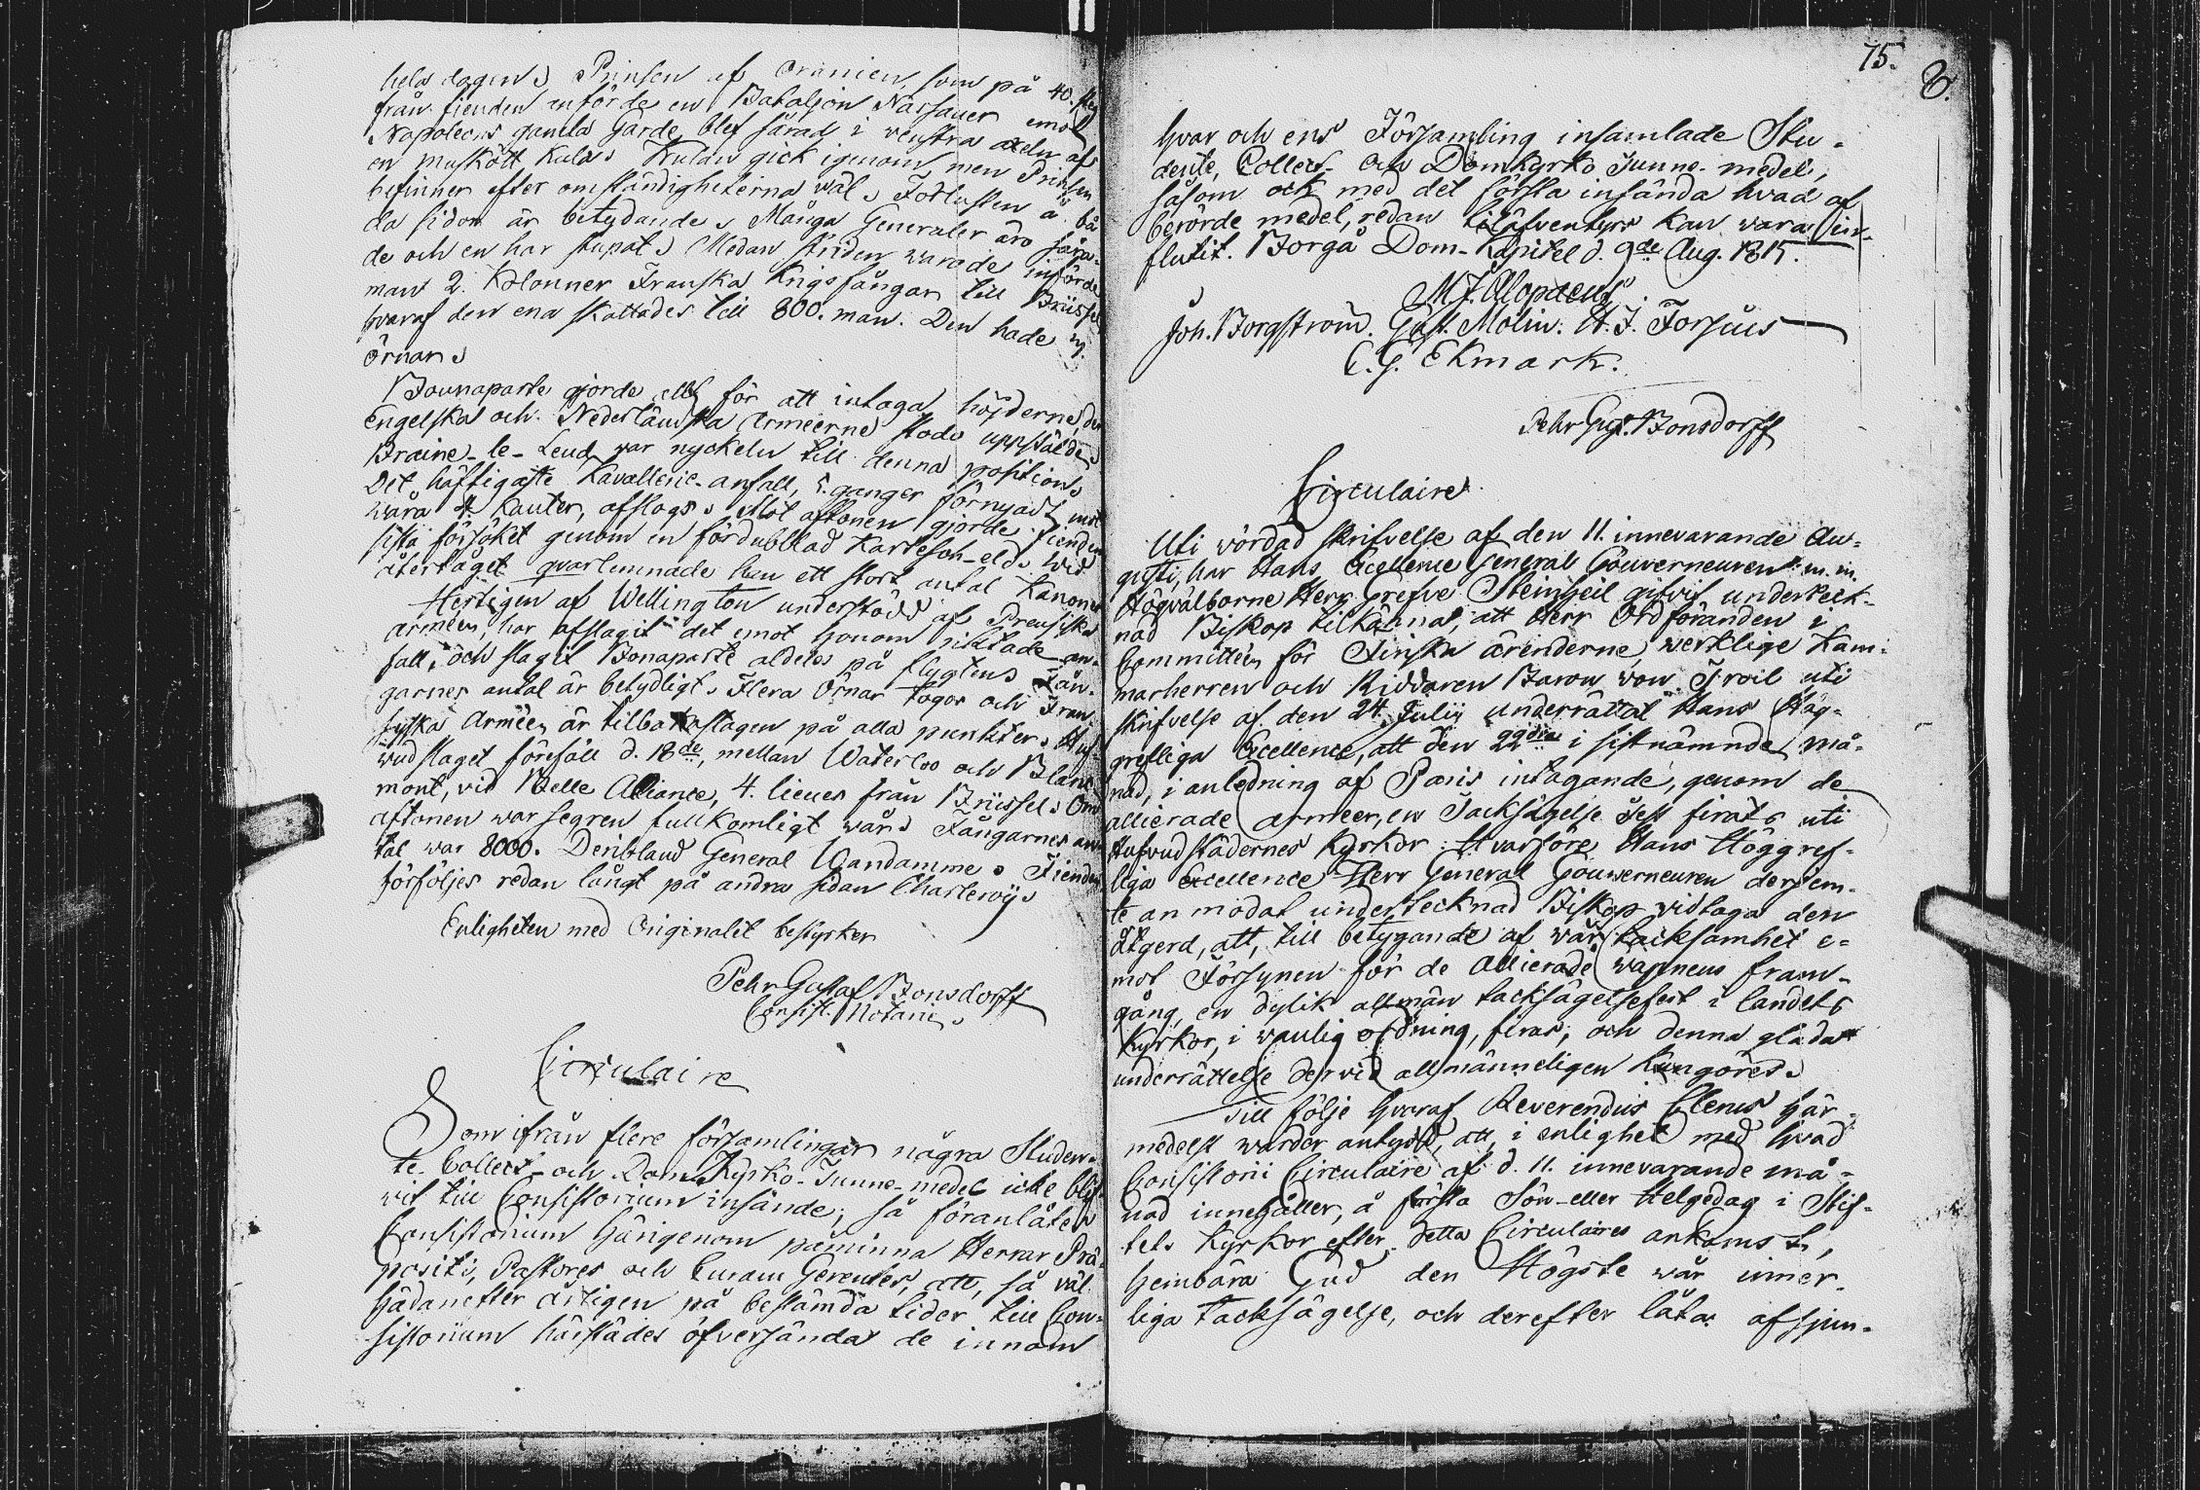 hela dagen. Prinsen af Oranien, som på 40. steg
från fienden anförde en Bataljon Nassauer emot
Napoleons gamla Garde, blef sårad i venstra axeln af
en muskött kula. Kulan gick igenom, men Prinsen
befinner efter omständigheterna wäl. Förlusten å bå
da sidor är betydande. Många Generaler äro såra-
de och en har stupat. Medan striden warade införde
man 2. Kolonner Franska Krigsfångar till Brüssel
hvaraf den ena skattades till 800. man. Den hade
Örnar.
Bounaparte gjorde allt för att intaga höjderne, der
Engelska och Nederländska Armeerne stodo uppstälde.
Braine-le-Leud war nyckeln till denna position.
Det häftigaste Kavallerie-anfall, 5. gånger förnyadt mot
wåra 4. Kanter, afslogs. Mot aftonen gjorde fienden
sista försöket genom en fördubblad Kartesch-eld. Wid
återtåget qvarlemnade han ett stort antal Kanoner
Hertigen af Wellington understödd af Preusiska
armeen, har afslagit det emot honom riktade an-
fall, och slagit Bonaparte aldeles på flygten. Fån-
garnes antal är betydligt. Flera Örnar togos och Fran-
syska Armeen är tilbakaslagen på alla punkter. Huf-
wudslaget föreföll d. 18de, mellan Waterloo och Planc
mont, vid Belle Alliance, 4. lieues från Brüssel. Om
aftonen war segren fullkomligt wår. Fångarnes an-
tal war 8000. Deribland General Wandamme. Fienden
förföljes redan långt på andra sidan Charleroij.
Enligheten med Originalet bestyrker
Pehr Gustaf Bonsdorff
Consist. Notarie.
Circulaire
Som ifrån flere församlingar några Studen-
te- Collect- och Dom-Kyrko-Tunne-medel icke blif-
wit till Consistorium insände; så föranlåtes
Consistorium härigenom påminna Herrar Præ-
positi, Pastores och Curam Gerentes, att, så wäl
hädanefter årligen på bestämda tider till Con-
sistorium härstädes öfversända de innom
75.
hvar och ens Församling insamlade Stu-
dente, Collect- och Domkyrko Tunne-medel,
såsom ock med det första insända hvad af
berörde medel, redan tiläfventyrs kan wara in-
flutit. Borgå Dom-Kapitel d. 9de Aug. 1815.
M. J. Alopaeus
Joh. Borgström. Gust. Molin. H. J. Forsius
C. G. Ekmark.
Pehr Gust. Bonsdorff
Circulaire
Uti wördad skrifvelse af den 11. innevarande Au-
gusti, har Hans Excellence General Gouverneuren m. m.
Högwälborne Herr Grefve Steinheil gifvit underteck-
nad Biskop tilkänna, att Herr Ordföranden i
Committéen för Finska ärenderne, werklige Kam-
marherren och Riddaren Baron von Troil uti
skrifvelse af den 24. Julii underrättat Hans Hög-
grefliga Excellence, att den 22dra i sistnämnde må-
nad, i anledning af Paris intagande, genom de
allierade armeer, en Tacksägelse Fest firats uti
Hufvudstädernes Kyrkor. Hvarföre Hans Höggref-
liga Excellence Herr General Gouverneuren dersem-
te anmodat undertecknad Biskop vidtaga den
åtgerd, att, till betygande af wår tacksamhet e-
mot Försynen för de Allierade wapnens fram-
gång, en dylik allmän tacksägelsefest i landets
Kyrkor, i wanlig ordning, firas, och denna glada
underrättelse derwid allmänneligen kungöres.
Till följe hvaraf Reverendus Clerus här-
medelst warder antydd, att, i enlighet med hvad
Consistorii Circulaire af d. 11. innevarande må-
nad innehåller, å första Sön-eller Helgedag i Stif-
tets Kyrkor efter detta Circulaires ankomst,
hembära Gud den Högste wår inner-
liga tacksägelse, och derefter låta afsjun-